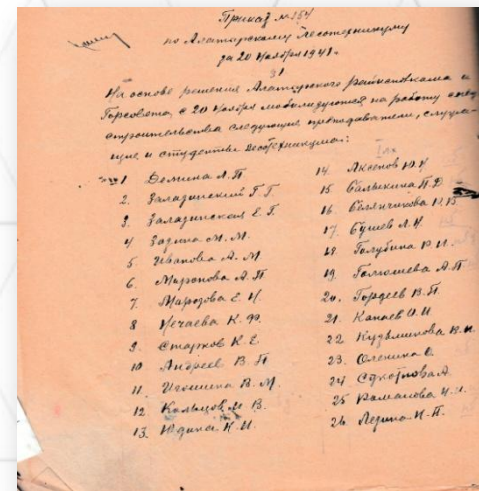 Приказ № 254
по Алатырскому Лесотехникуму
за 20 ноября 1941 г.
§1
На основе решения Алатырского Райисполкома и
Горсовета, с 20 ноября мобилизуются на работу
строительства следующие преподаватели, служа-
щие и студенты Лесотехникума:
1 Демина А. П.
2. Залазинский Г. Г.
3. Залазинская Е. Г.
4 Зорина М. М.
5. Иванова А. М
6. Миронова А. П
7. Марозова Е. И.
8 Нечаева К. Ф.
9. Старков К. Е.
10 Андреев В. П
11. Игошина В. М.
12 Кольцов М В.
13. Юдина К. И.
14. Аксенов Ю. И
15 Балыкина П. Д
16. Белянчикова В. В
17. Бушев А. И.
18. Голубина Р. И.
19. Голюшева А. П
20. Гордеев В. П.
21. Капаев О. И
22. Кузьминова В. И.
23. Оленина О.
24
25 Романова Н. И.
26.